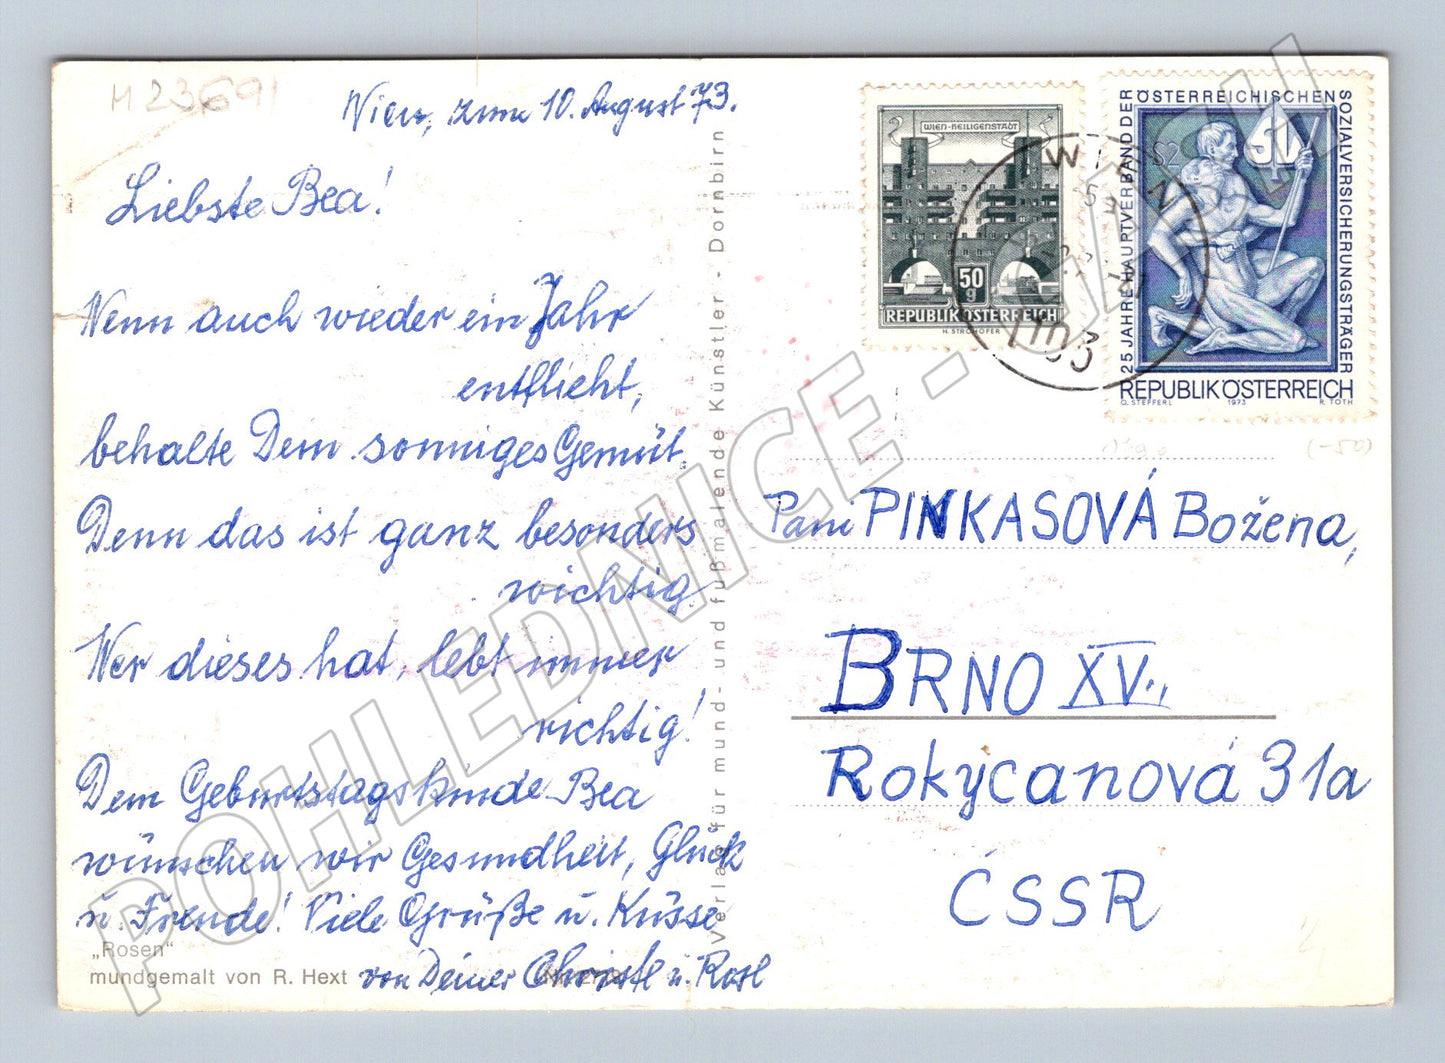 M 23691
Wien, zum 10. August 73.
Liebste Bea!
Wenn auch wieder ein Jahr
entflieht,
behalte Dein sonniges Gemüt.
Denn das ist ganz besonders
wichtig.
Wer dieses hat, lebt immer
richtig!
Dem Geburtstagskinde Bea
wünschen wir Gesundheit, Glück
u. Freude! Viele Grüße u. Küsse
von Deiner Christl u. Rosl
„Rosen"
mundgemalt von R. Hext
Verlag für mund- und fußmalende Künstler - Dornbirn
WIEN-HEILIGENSTADT
50
g
REPUBLIK ÖSTERREICH
H. STROHOFER
WIEN
1103
25 JAHRE HAUPTVERBAND DER ÖSTERREICHISCHEN SOZIALVERSICHERUNGSTRÄGER
S2
SV
REPUBLIK ÖSTERREICH
O. STEFFERL 1973 R. TOTH
(-50)
Paní PINKASOVÁ Božena,
BRNO XV.,
Rokycanová 31a
ČSSR
POHLEDNICE - GARBU